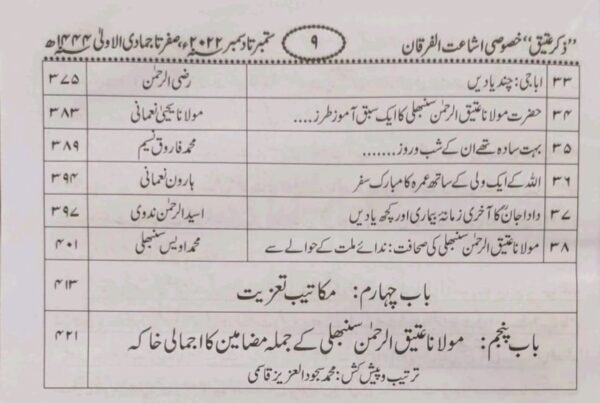 ”ذکر عتیق“ خصوصی اشاعت الفرقان ۹ ستمبر تا دسمبر ۲۰۲۲ء، صفر تا جمادی الاولیٰ ۱۴۴۴ھ
۳۳ اباجی: چند یادیں رضی الرحمٰن ۳۷۵
۳۴ حضرت مولانا عتیق الرحمٰن سنبھلی کا ایک سبق آموز طرز.... مولانا یحییٰ نعمانی ۳۸۳
۳۵ بہت سادہ تھے ان کے شب و روز........ محمد فاروق نسیم ۳۸۹
۳۶ اللہ کے ایک ولی کے ساتھ عمرہ کا مبارک سفر ہارون نعمانی ۳۹۴
۳۷ دادا جانؒ کا آخری زمانۂ بیماری اور کچھ یادیں اسید الرحمٰن ندوی ۳۹۷
۳۸ مولانا عتیق الرحمٰن سنبھلی کی صحافت: ندائے ملت کے حوالے سے محمد اویس سنبھلی ۴۰۱
باب چہارم: مکاتیب تعزیت ۴۱۳
باب پنجم: مولانا عتیق الرحمٰن سنبھلی کے جملہ مضامین کا اجمالی خاکہ ۴۲۱
ترتیب و پیش کش: محمد سجود العزیز قاسمی